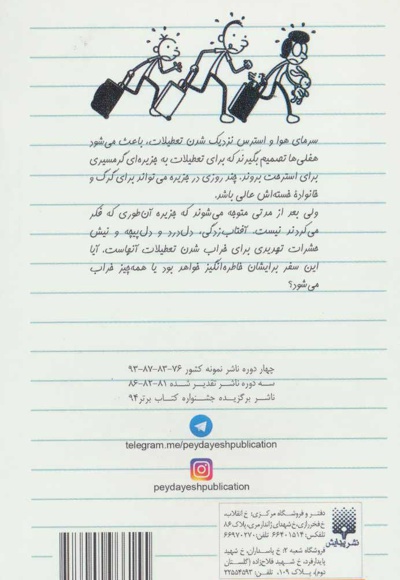 سرمای هوا و استرس نزدیک شدن تعطیلات، باعث می‌شود
هفلی‌ها تصمیم بگیرند که برای تعطیلات به جزیره‌ای گرمسیری
برای استراحت بروند. چند روزی در جزیره می‌تواند برای گرگ و
خانواده‌ خسته‌اش عالی باشد.
ولی بعد از مدتی متوجه می‌شوند که جزیره آن‌طوری که فکر
می‌کردند نیست. آفتاب‌زدگی، دل‌درد و دل‌پیچه و نیش
حشرات تهدیدی برای خراب شدن تعطیلات آنهاست. آیا
این سفر برایشان خاطره‌انگیز خواهد بود یا همه‌چیز خراب
می‌شود؟
چهار دوره ناشر نمونه کشور ۷۶-۸۳-۸۷-۹۳
سه دوره ناشر تقدیر شده ۸۱-۸۲-۸۶
ناشر برگزیده جشنواره کتاب برتر ۹۴
telegram.me/peydayeshpublication
peydayeshpublication
نشر پیدایش
دفتر و فروشگاه مرکزی: خ انقلاب،
خ فخررازی، خ شهدای ژاندارمری، پلاک ۸۶
تلفکس: ۶۶۴۰۱۵۱۴ تلفن: ۶۶۹۷۰۲۷۰
فروشگاه شعبه ۲: خ پاسداران، خ شهید
پایدارفرد، خ شهید فلاح‌زاده (گلستان
دوم)، پلاک ۱۰۹، تلفن: ۲۲۵۵۴۵۹۳